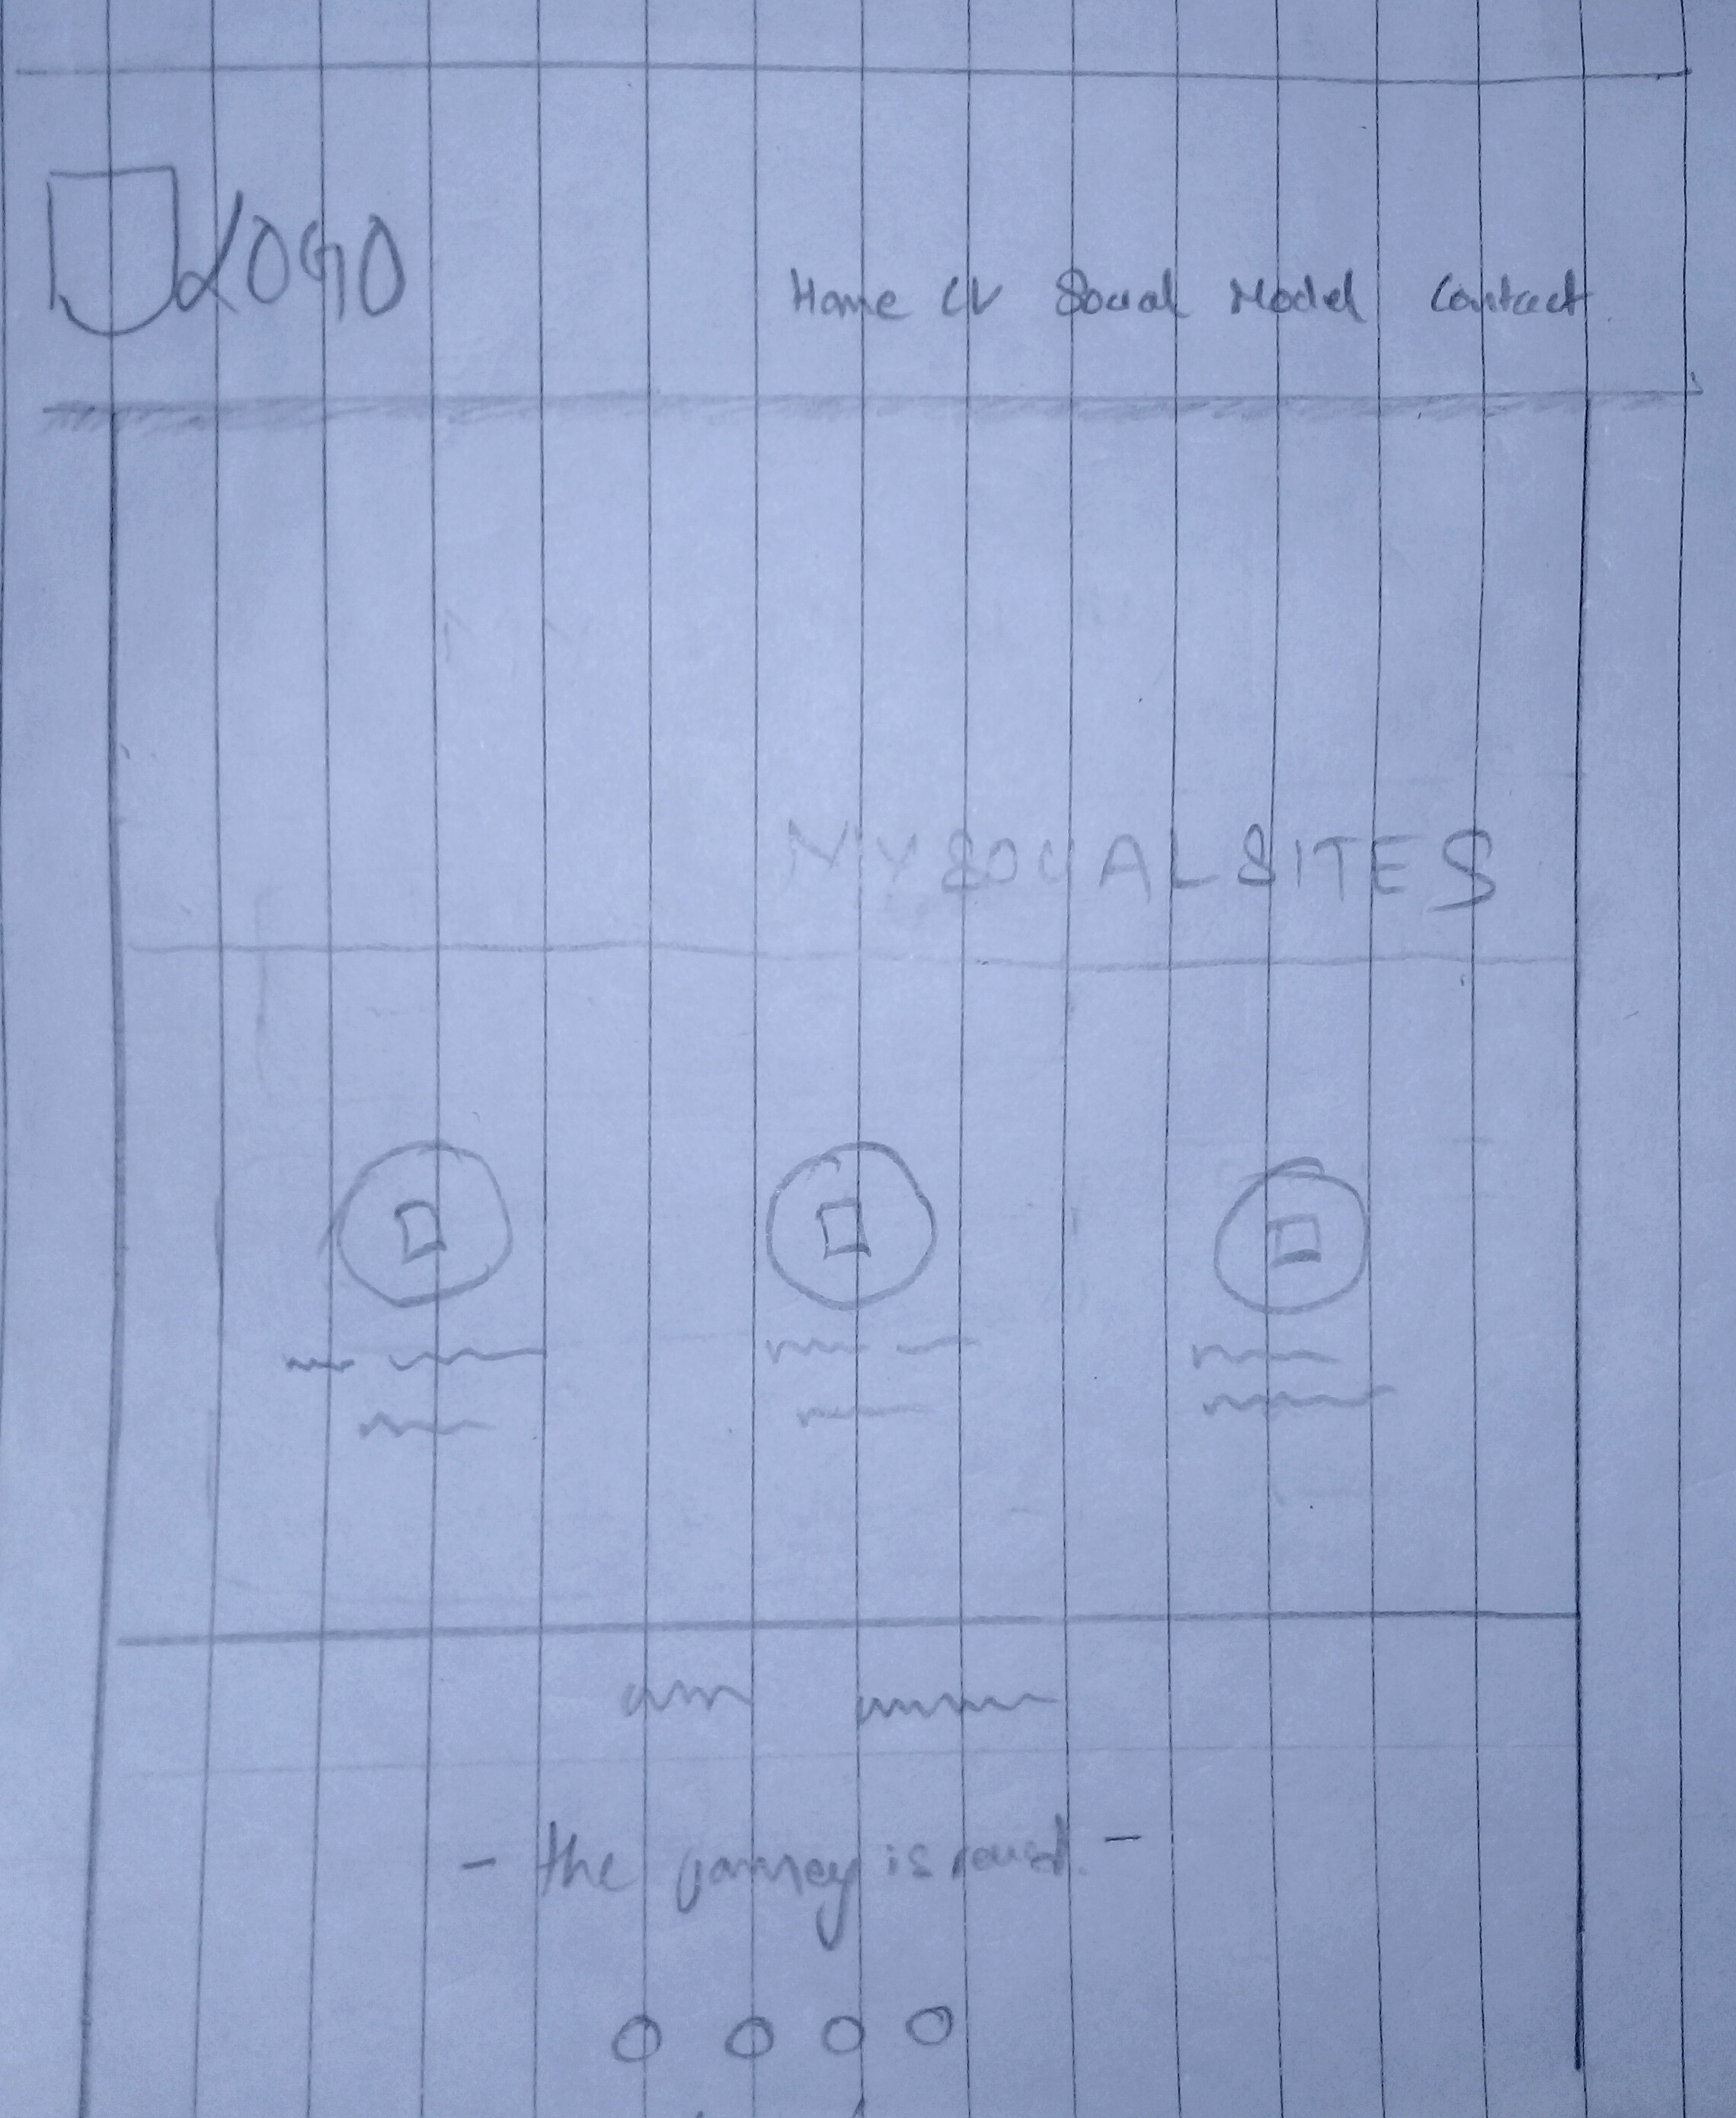 LOGO
Home CV Social Model Contact
MY SOCIAL SITES
- the is -